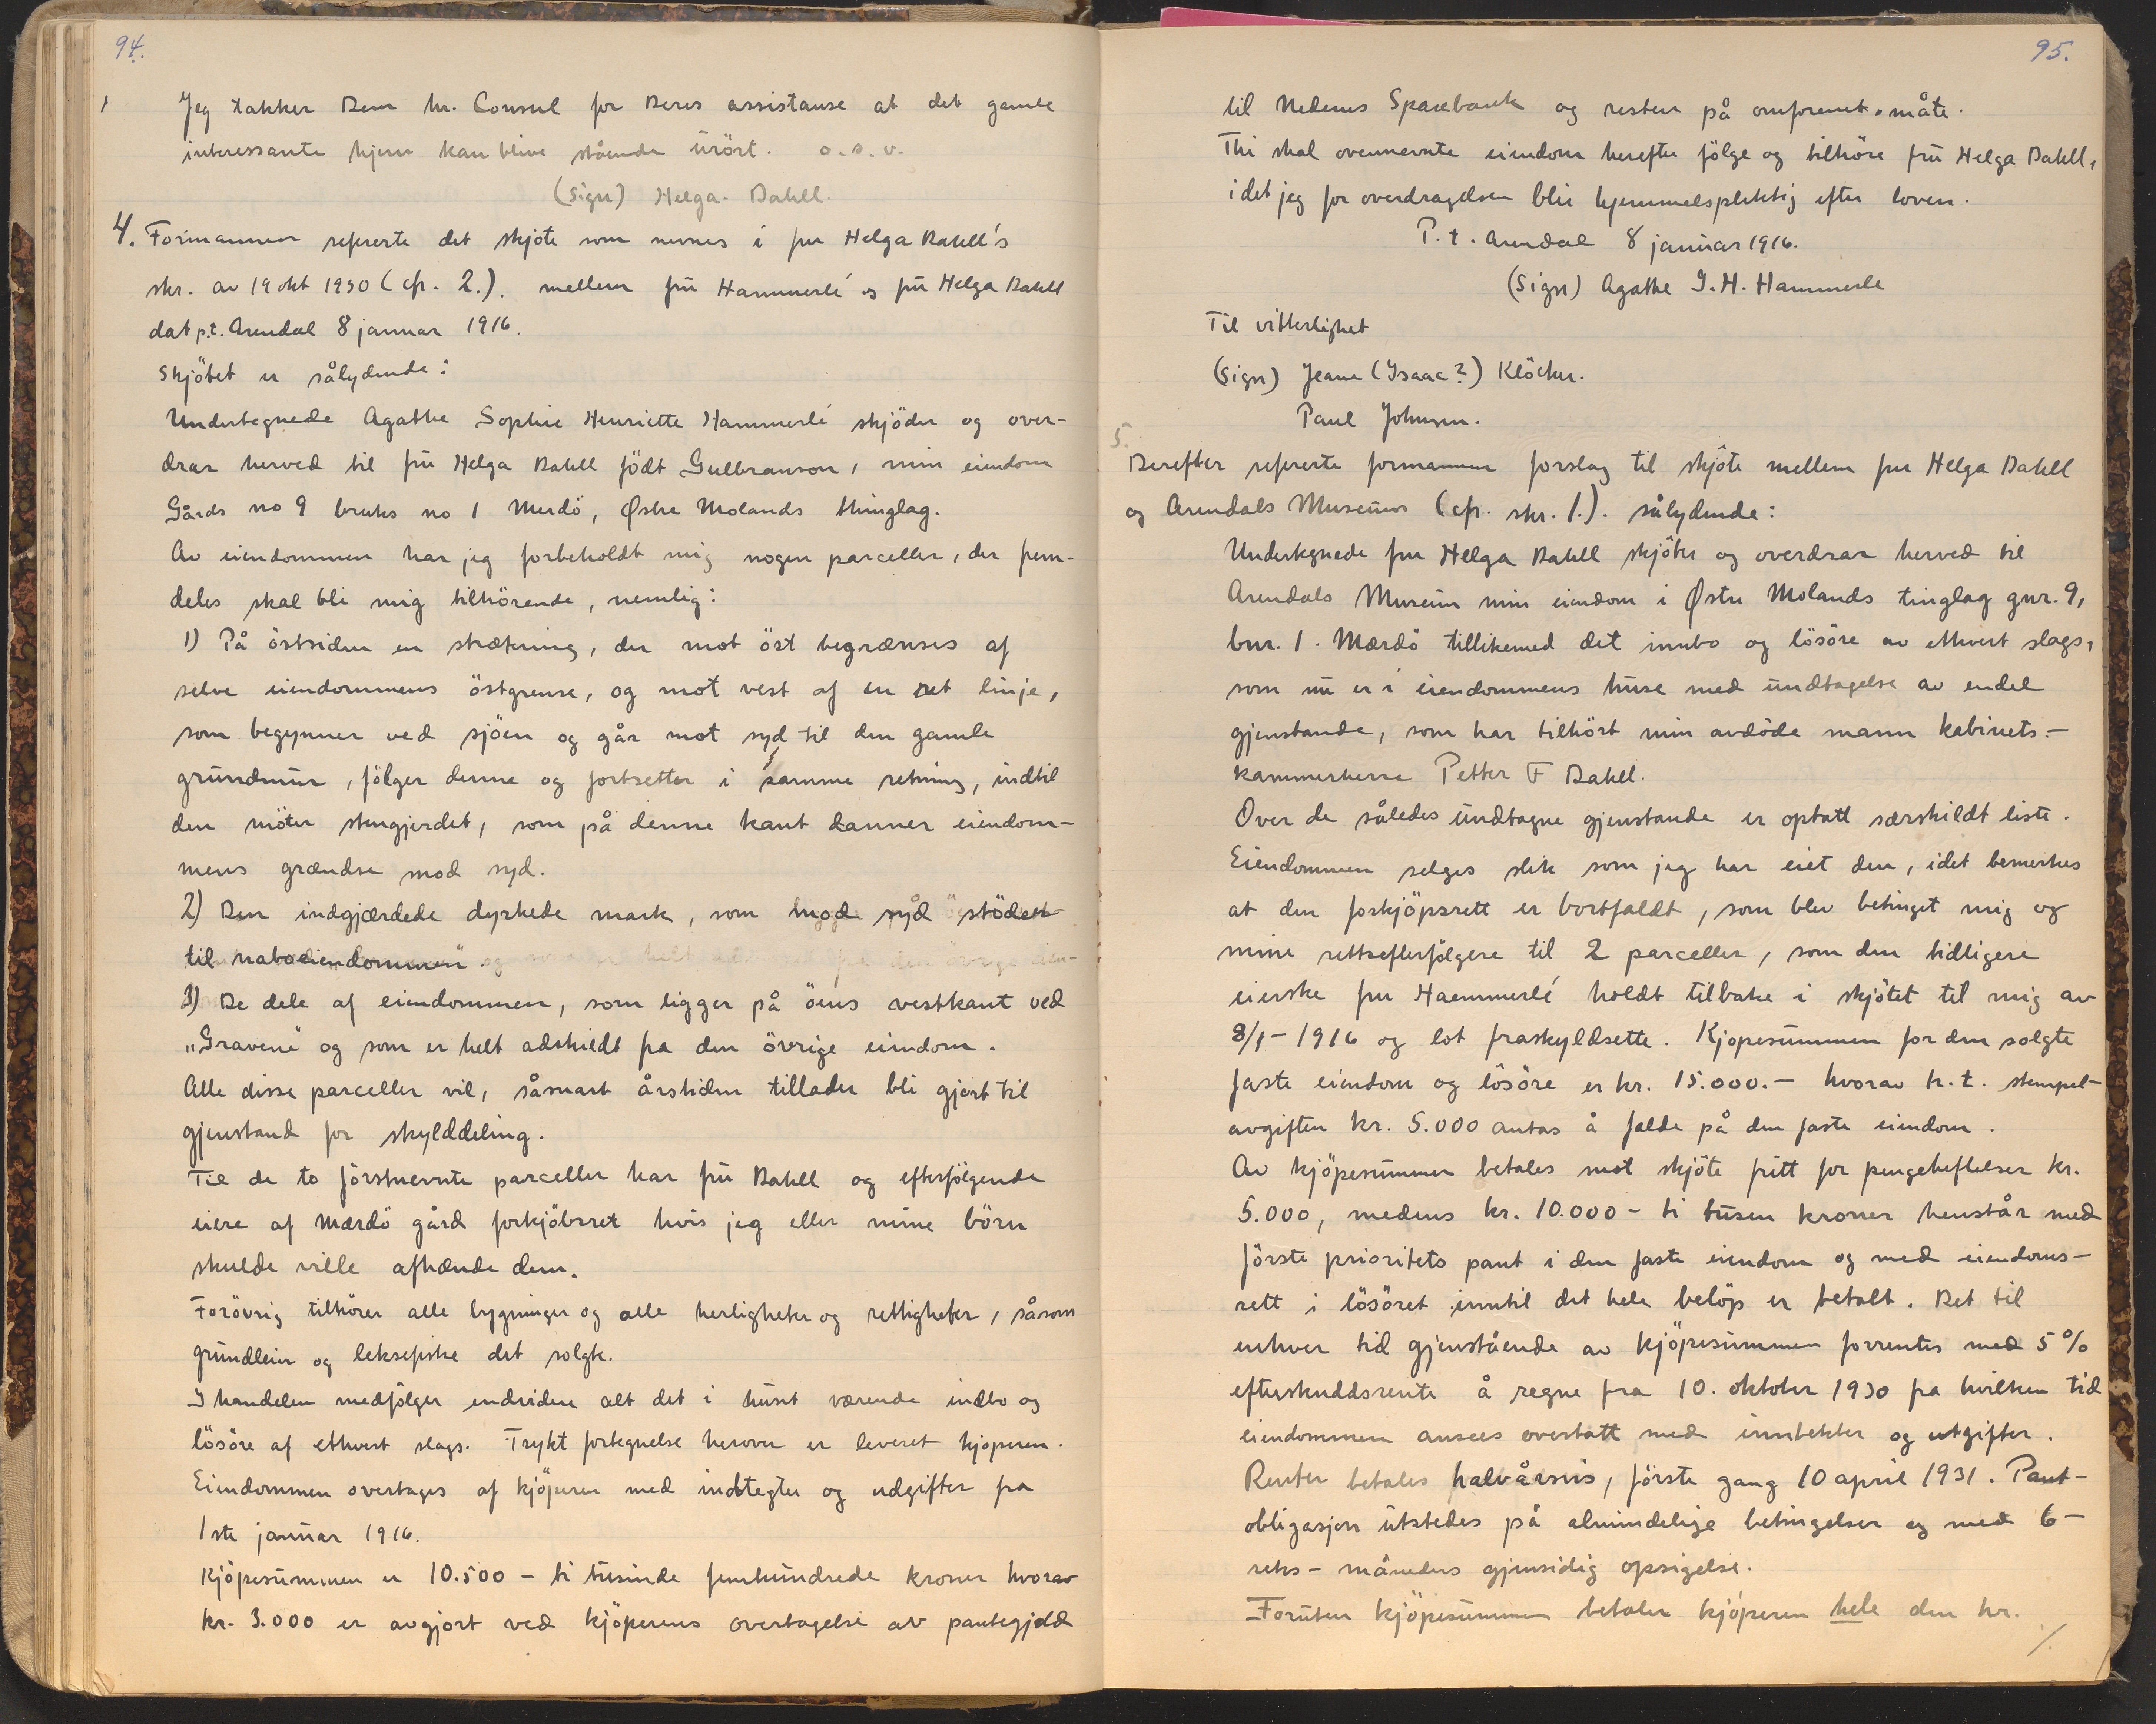 94.
Jeg takker Dem hr. Consul for Deres assistanse at det gamle
interessante hjem kan blive stående urört. o.s.v.
(sign) Helga Dahll.
4. Formannen refererte det skjöte som nevnes i fru Helga Dahll's
skr. av 19 okt 1930 (cfr. 2.). mellem fru Hammerlé og fru Helga Dahll
dat p.t. Arendal 8 januar 1916.
Skjötet er sålydende:
Undertegnede Agathe Sophie Henriette Hammerlé skjöder og over-
drar herved til fru Helga Dahll födt Gulbranson, min eiendom
Gårds no 9 bruks no 1 Merdö, Østre Molands thinglag.
Av eiendommen har jeg forbeholdt mig nogen parceller, der frem-
deles skal bli mig tilhörende, nemlig:
1) På östsiden en strækning, der mot öst begrænses af
selve eiendommens östgrense, og mot vest af en ret linje,
som begynner ved sjöen og går mot syd til den gamle
grundmur, fölger denne og fortsetter i samme retning, indtil
den möter stengjerdet, som på denne kant danner eiendom-
mens grændse mod syd.
2) Den indgjærdede dyrkede mark, som mod syd stöder
til naboeiendommen".
3) De dele af eiendommen, som ligger på öens vestkant ved
"Gravene" og som er helt adskildt fra den övrige eiendom.
Alle disse parceller vil, såsnart årstiden tillader bli gjort til
gjenstand for skylddeling.
Til de to förstnevnte parceller har fru Dahll og efterfölgende
eiere af Mærdö gård forkjöbsret hvis jeg eller mine börn
skulde ville afhænde dem.
Forövrig tilhörer alle bygninger og alle herligheter og rettigheter, såsom
grundleier og laksefiske det solgte.
I handelen medfölger endvidere alt det i huset værende indbo og
lösöre af ethvert slags. Trykt fortegnelse herover er leveret kjöperen.
Eiendommen overtages af kjöperen med indtegter og udgifter fra
1ste januar 1916.
Kjöpesummen er 10.500 - ti tusinde femhundrede kroner hvorav
kr. 3.000 er avgjort ved kjöperens overtagelse av pantegjeld
95.
til Nedenes Sparebank og resten på omforenet måte.
Thi skal ovennevnte eiendom herefter fölge og tilhöre fru Helga Dahll,
idet jeg for overdragelsen blir hjemmelspliktig efter loven.
P.t. Arendal 8 januar 1916.
(Sign) Agathe S. H. Hammerle
Til vitterlighet
(Sign) Jeane (Isaac?) Klöcker.
Paul Johnsen.
5.
Derefter refererte formannen forslag til skjöte mellem fru Helga Dahll
og Arendals Museum (cfr. skr. 1.). sålydende:
Undertegnede fru Helga Dahll skjöter og overdrar herved til
Arendals Museum min eiendom i Østre Molands tinglag gnr. 9,
bnr. 1. Mærdö tillikemed det innbo og lösöre av ethvert slags,
som nu er i eiendommens huse med undtagelse av endel
gjenstande, som har tilhört min avdöde mann kabinets-
kammerherre Petter F Dahll.
Over de således undtagne gjenstande er optatt særskildt liste.
Eiendommen selges slik som jeg har eiet den, idet bemerkes
at den forkjöpsrett er bortfaldt, som blev betinget mig og
mine rettsefterfölgere til 2 parceller, som den tidligere
eierske fru Haemmerlé holdt tilbake i skjötet til mig av
8/1-1916 og lot fraskyldsette. Kjöpesummen for den solgte
faste eiendom og lösöre er kr. 15.000.- hvorav h.t. stempel-
avgiften kr. 5.000 antas å falde på den faste eiendom.
Av kjöpesummen betales mot skjöte fritt for pengeheftelser kr.
5.000, medens kr. 10.000 - ti tusen kroner henstår med
förste prioritets pant i den faste eiendom og med eiendoms-
rett i lösöret inntil det hele belöp er betalt. Det til
enhver tid gjenstående av kjöpesummen forrentes med 5%
efterskuddsrente å regne fra 10. oktober 1930 fra hvilken tid
eiendommen ansees overtatt med inntekter og utgifter.
Renter betales halvårsvis, förste gang 10 april 1931. Pant-
obligasjon utstedes på almindelige betingelser og med 6-
seks - måneders gjensidig opsigelse.
Foruten kjöpesummen betaler kjöperen hele den kr.
./.